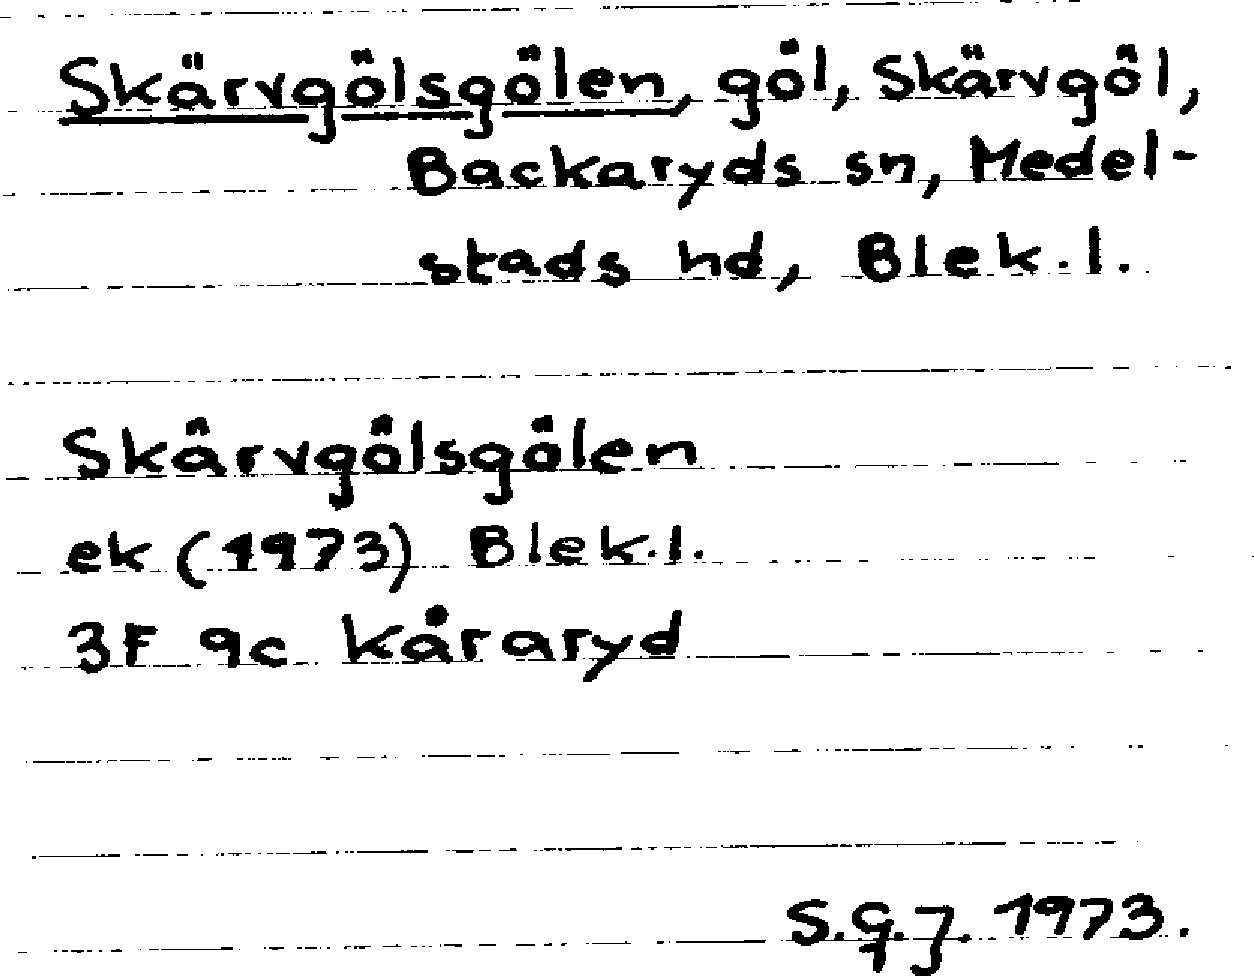 Skärvgölsgölen, göl, Skärvgöl,
Backaryds sn, Medel-
stads hd, Blek.l.
Skärvgölsgölen
ek (1973) Blek.l.
3F 9c Kåraryd
S.G.J. 1973.